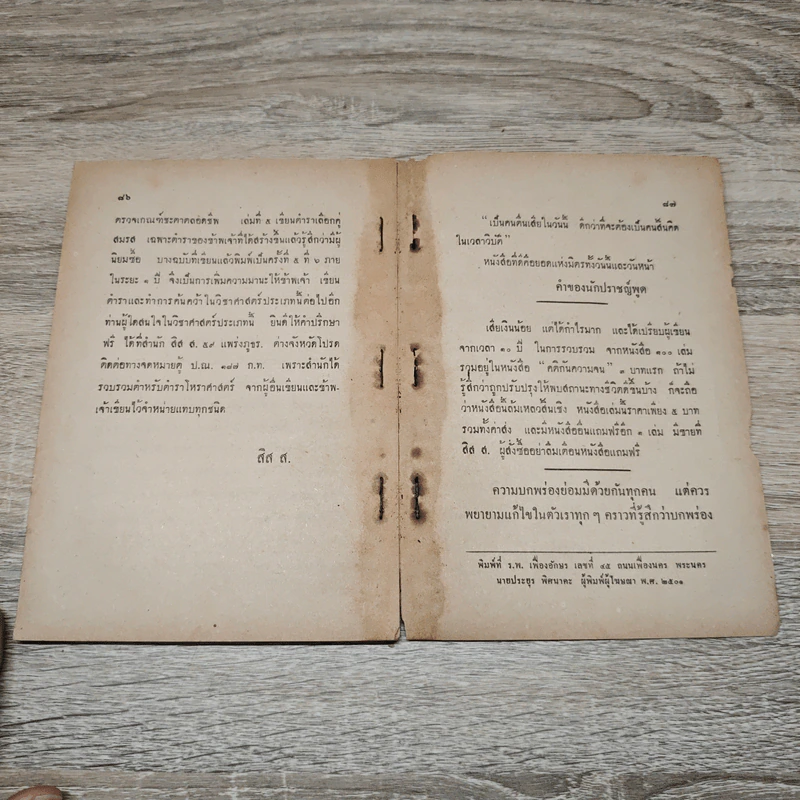 ๘๖
ตรวจเกณฑ์ชะตาตลอดชีพ เล่มที่ ๕ เขียนตำราเลือกคู่
สมรส เฉพาะตำราของข้าพเจ้าที่ได้สร้างขึ้นแล้วรู้สึกว่ามีผู้
นิยมซื้อ บางฉบับที่เขียนแล้วพิมพ์เป็นครั้งที่ ๕ ที่ ๖ ภาย
ในระยะ ๑ ปี จึงเป็นการเพิ่มความมานะให้ข้าพเจ้า เขียน
ตำราและทำการค้นคว้าในวิชาศาสตร์ประเภทนี้ต่อไปอีก
ท่านผู้ใดสนใจในวิชาศาสตร์ประเภทนี้ ยินดีให้คำปรึกษา
ฟรี ได้ที่สำนัก สิส ส. ๕๙ แพร่งภูธร. ต่างจังหวัดโปรด
ติดต่อทางจดหมายตู้ ป.ณ. ๑๗๗ ก.ท. เพราะสำนักได้
รวบรวมตำหรับตำราโหราศาสตร์ จากผู้อื่นเขียนและข้าพ-
เจ้าเขียนไว้จำหน่ายแทบทุกชนิด
สิส ส.
๘๗
"เป็นคนตื่นเสียในวันนี้ ดีกว่าที่จะต้องเป็นคนสิ้นคิด
ในเวลาวิบัติ"
หนังสือที่ดีคือยอดแห่งมิตรทั้งวันนี้และวันหน้า
คำของนักปราชญ์พูด
เสียเงินน้อย แต่ได้กำไรมาก และได้เปรียบผู้เขียน
จากเวลา ๑๐ ปี ในการรวบรวม จากหนังสือ ๑๐๐ เล่ม
รวมอยู่ในหนังสือ "คติกันความจน" ๓ บาทแรก ถ้าไม่
รู้สึกว่าถูกปรับปรุงให้พบสถานะทางชีวิตดีขึ้นบ้าง ก็จะถือ
ว่าหนังสือนี้ล้มเหลวสิ้นเชิง หนังสือเล่มนี้ราคาเพียง ๕ บาท
รวมทั้งค่าส่ง และมีหนังสืออื่นแถมฟรีอีก ๑ เล่ม มีขายที่
สิส ส. ผู้สั่งซื้ออย่าลืมเตือนหนังสือแถมฟรี
ความบกพร่องย่อมมีด้วยกันทุกคน แต่ควร
พยายามแก้ไขในตัวเราทุก ๆ คราวที่รู้สึกว่าบกพร่อง
พิมพ์ที่ ร.พ. เฟื่องอักษร เลขที่ ๔๕ ถนนเฟื่องนคร พระนคร
นายประยูร พิศนาคะ ผู้พิมพ์ผู้โฆษณา พ.ศ. ๒๕๐๑